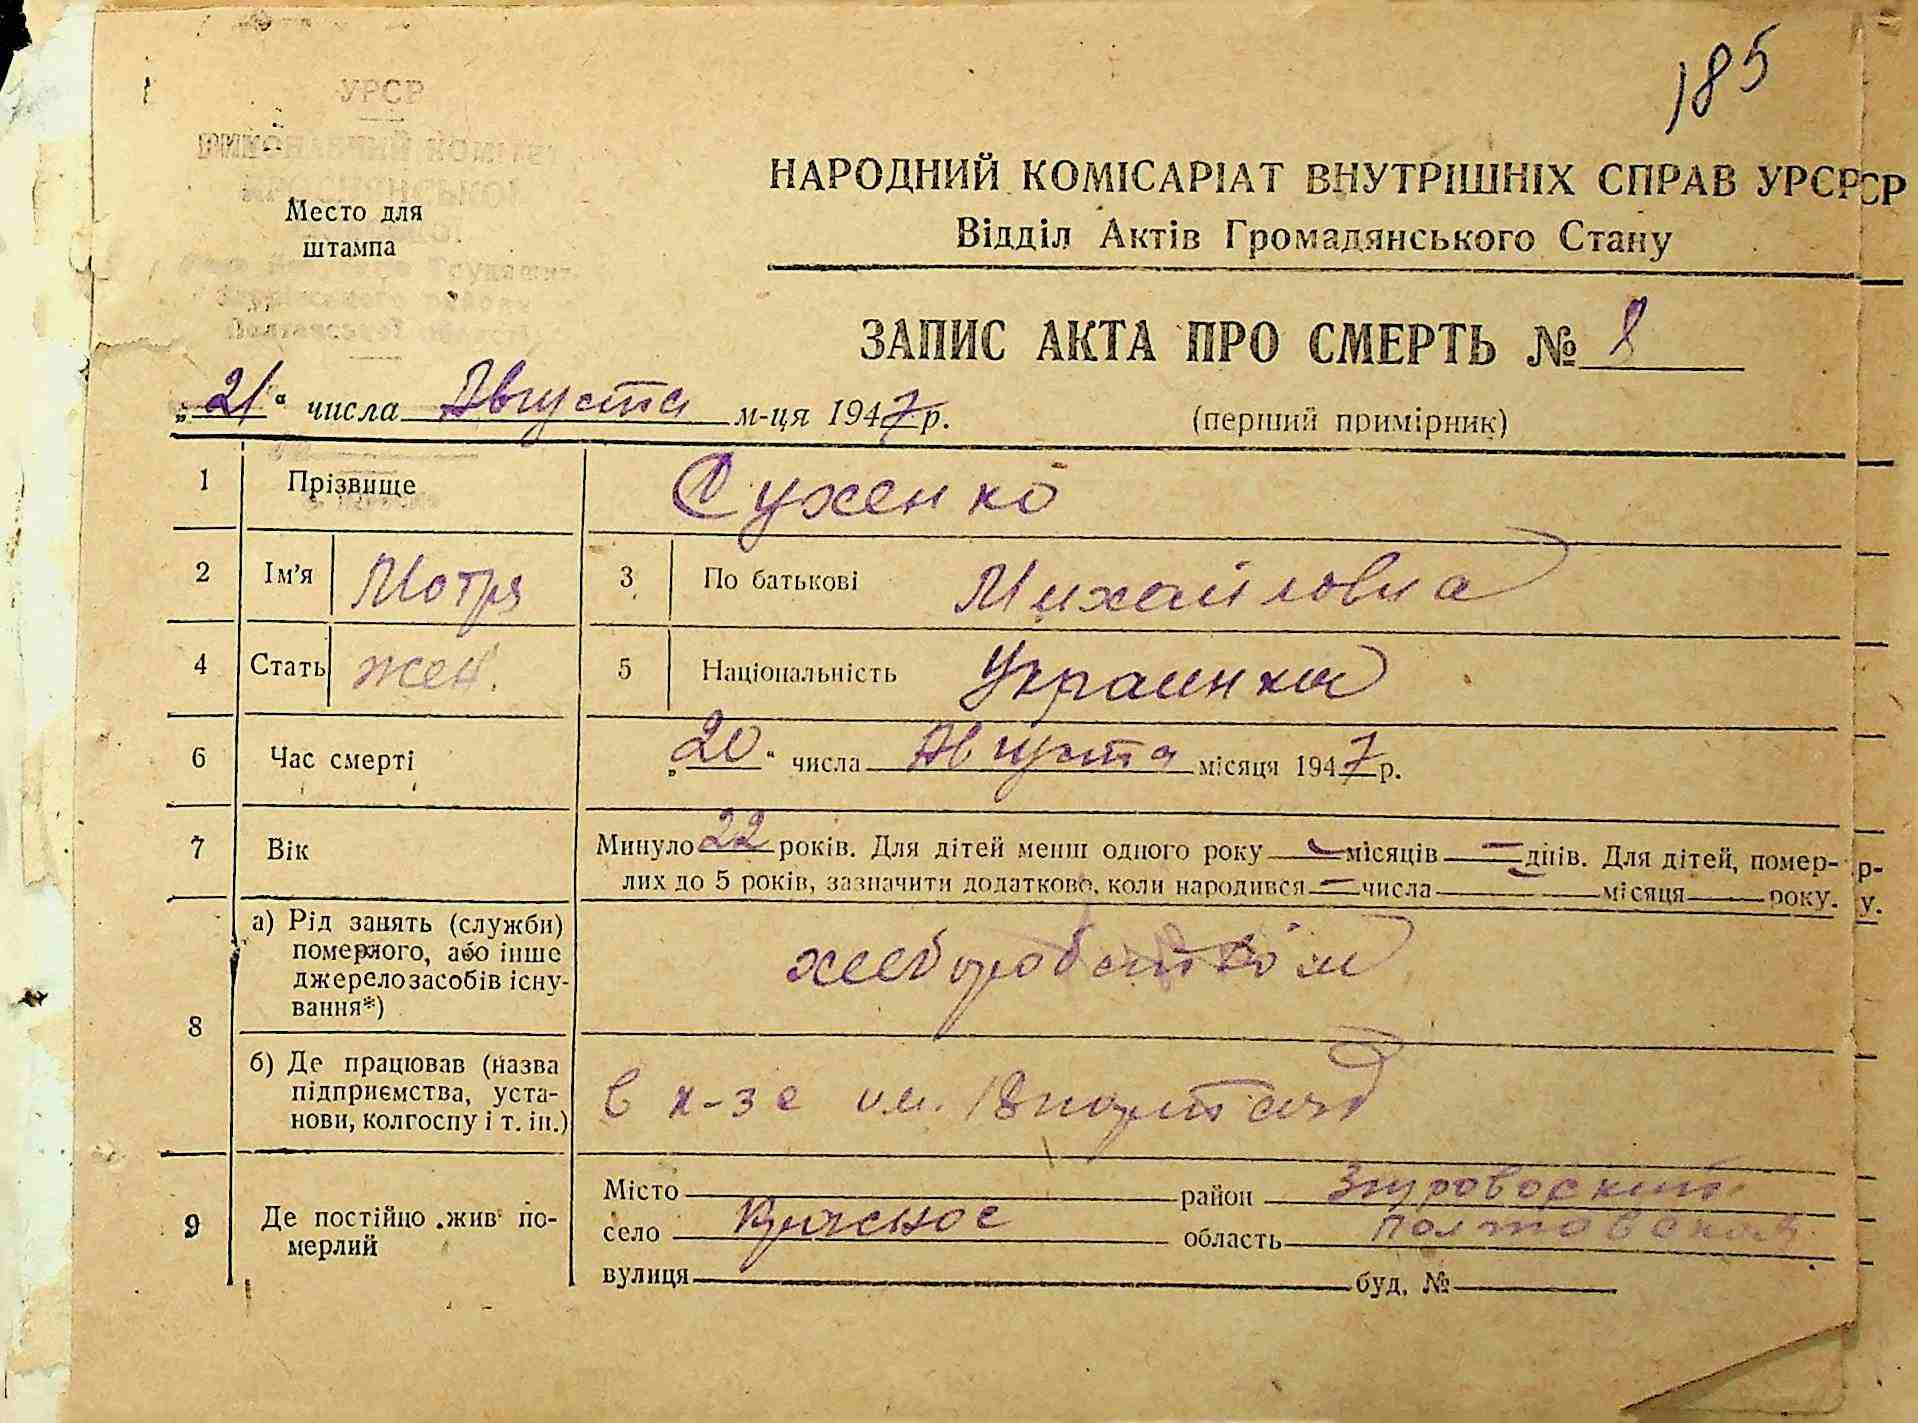 185
УРСР
ВИКОНАВЧИЙ КОМІТЕТ
Место для
штампа
НАРОДНИЙ КОМІСАРІАТ ВНУТРІШНІХ СПРАВ УРСР
СР
Відділ Актів Громадянського Стану
ЗАПИС АКТА ПРО СМЕРТЬ № 8
„21“ числа Августа м-ця 1947 р.
(перший примірник)
1 Прізвище Сухенко
2 Ім'я Мотря 3 По батькові Михайловна
4 Стать жен. 5 Національність Украинка
6 Час смерті „20“ числа Августа місяця 1947 р.
7 Вік Минуло 22 років. Для дітей менш одного року — місяців — днів. Для дітей, помер- р-
лих до 5 років, зазначити додатково, коли народився — числа місяця року. у.
8 а) Рід занять (служби)
померлого, або інше
джерело засобів існу-
вання*)
б) Де працював (назва
підприємства, уста-
нови, колгоспу і т. ін.)
в к-зе им. 18 партсъезд
9 Де постійно жив по-
мерлий
Місто район Згуровский
село Красное область Полтавская
вулиця буд. №